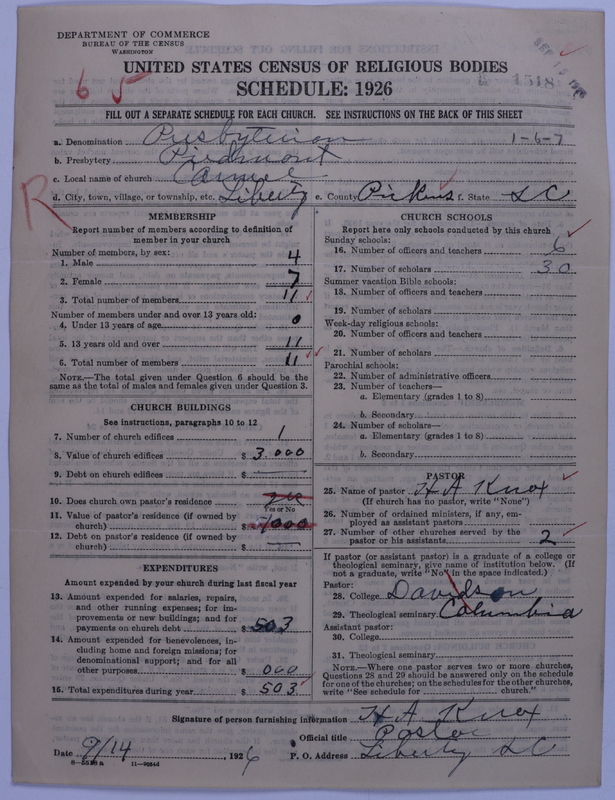 DEPARTMENT OF COMMERCE
BUREAU OF THE CENSUS
WASHINGTON
UNITED STATES CENSUS OF RELIGIOUS BODIES
SCHEDULE: 1926
65
1518
FILL OUT A SEPARATE SCHEDULE FOR EACH CHURCH. SEE INSTRUCTIONS ON THE BACK OF THIS SHEET
a. Denomination Presbyterian 1-6-7
b. Presbytery Piedmont
c. Local name of church Carmel
d. City, town, village, or township, etc. Liberty e. County Pickens f. State S C
R
MEMBERSHIP
Report number of members according to definition of
member in your church
Number of members, by sex:
1. Male 4
2. Female 7
3. Total number of members 11
Number of members under and over 13 years old:
4. Under 13 years of age 0
5. 13 years old and over 11
6. Total number of members 11
NOTE.—The total given under Question 6 should be the
same as the total of males and females given under Question 3.
CHURCH BUILDINGS
See instructions, paragraphs 10 to 12
7. Number of church edifices 1
8. Value of church edifices $ 3.000
9. Debt on church edifices $
10. Does church own pastor's residence yes
Yes or No
11. Value of pastor's residence (if owned by
church) $ 1000
12. Debt on pastor's residence (if owned by
church) $
EXPENDITURES
Amount expended by your church during last fiscal year
13. Amount expended for salaries, repairs,
and other running expenses; for im-
provements or new buildings; and for
payments on church debt $ 503
14. Amount expended for benevolences, in-
cluding home and foreign missions; for
denominational support; and for all
other purposes $ 000
15. Total expenditures during year $ 503
CHURCH SCHOOLS
Report here only schools conducted by this church
Sunday schools:
16. Number of officers and teachers 6
17. Number of scholars 30
Summer vacation Bible schools:
18. Number of officers and teachers
19. Number of scholars
Week-day religious schools:
20. Number of officers and teachers
21. Number of scholars
Parochial schools:
22. Number of administrative officers
23. Number of teachers—
a. Elementary (grades 1 to 8)
b. Secondary
24. Number of scholars—
a. Elementary (grades 1 to 8)
b. Secondary
PASTOR
25. Name of pastor H A Knox
(If church has no pastor, write "None")
26. Number of ordained ministers, if any, em-
ployed as assistant pastors
27. Number of other churches served by the
pastor or his assistants 2
If pastor (or assistant pastor) is a graduate of a college or
theological seminary, give name of institution below. (If
not a graduate, write "No" in the space indicated.)
Pastor:
28. College Davidson
29. Theological seminary Columbia
Assistant pastor:
30. College
31. Theological seminary
NOTE.—Where one pastor serves two or more churches,
Questions 28 and 29 should be answered only on the schedule
for one of the churches; on the schedules for the other churches,
write "See schedule for church."
Signature of person furnishing information H A Knox
Official title Pastor
Date 9/14, 1926 P. O. Address Liberty S C
8-5518a 11-90846